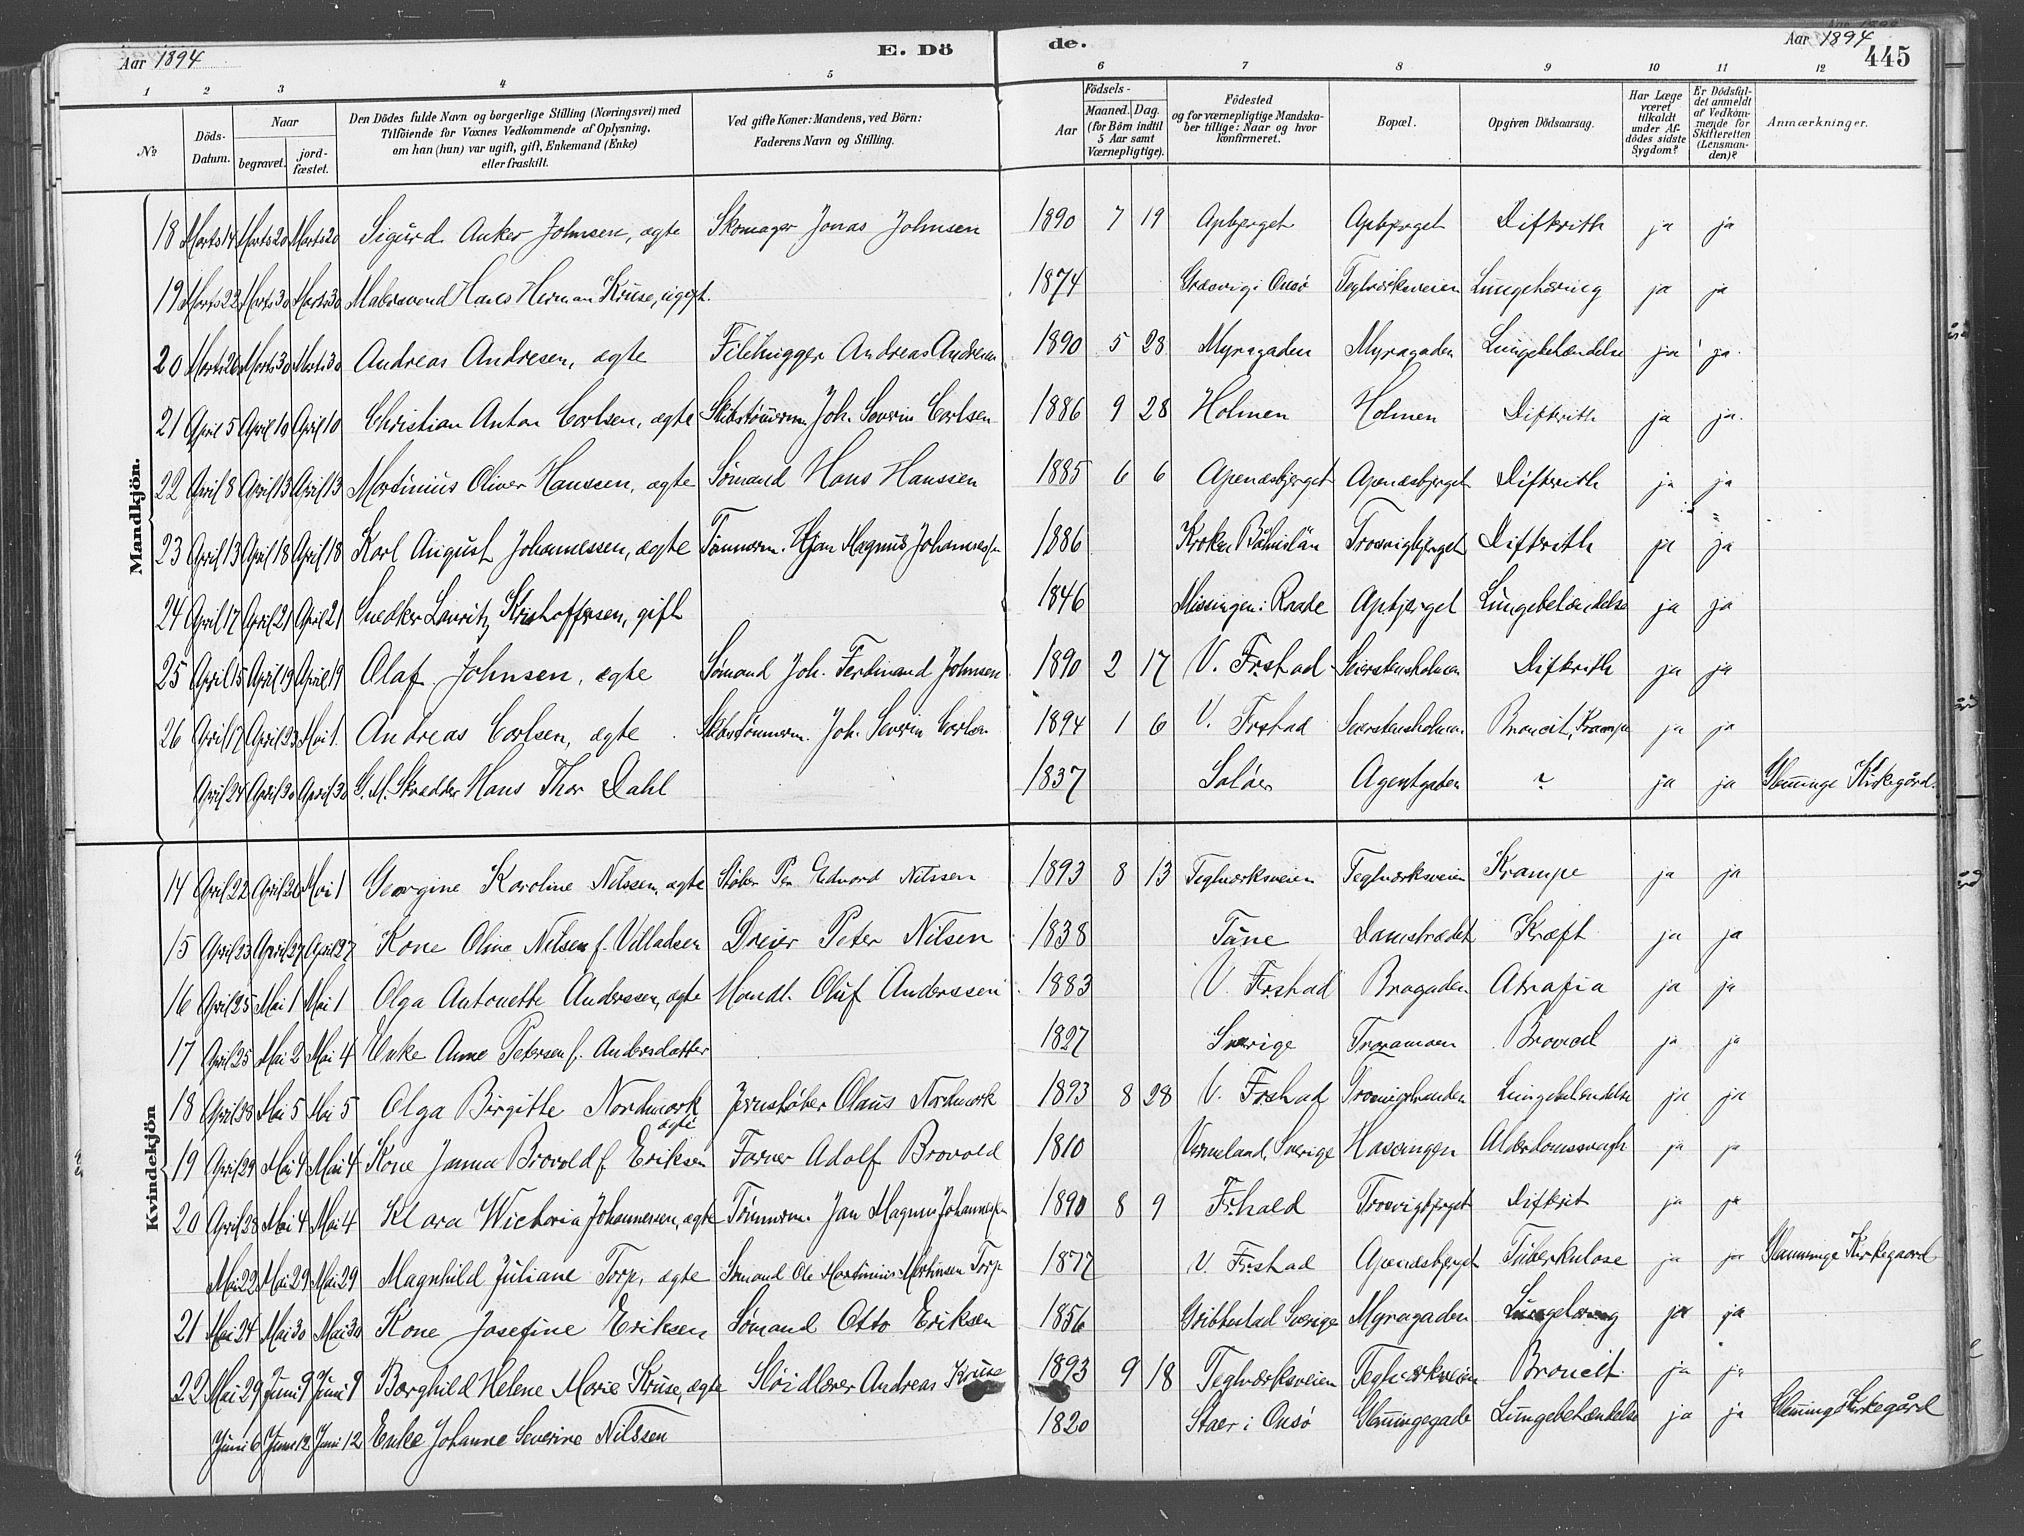 Aar 1894
E. Dö
de.
Aar 1894
445
1 2 3 4 5 6 7 8 9 10 11 12
№
Döds-Datum.
Naar
begravet.
jord-fæstet.
Den Dödes fulde Navn og borgerlige Stilling (Næringsvei) med
Tilföiende for Voxnes Vedkommende af Oplysning,
om han (hun) var ugift, gift, Enkemand (Enke)
eller fraskilt.
Ved gifte Koner: Mandens, ved Börn:
Faderens Navn og Stilling.
Födsels-
Aar
Maaned. Dag.
(for Börn indtil
5 Aar samt
Værnepligtige).
Födested
og for værnepligtige Mandska-
ber tillige: Naar og hvor
konfirmeret.
Bopæl.
Opgiven Dödsaarsag.
Har Læge
været
tilkaldt
under Af-
dödes sidste
Sygdom?
Er Dödsfal-
det anmeldt
af Vedkom-
mende for
Skifteretten
(Lensman-
den)?
Anmærkninger.
Mandkjön.
18 Marts 14 Marts 20 Marts 20 Sigurd Anker Johnsen, ægte Skomager Jonas Johnsen 1890 7 19 Apbjerget Apbjerget Difkrith ja ja
19 Marts 22 Marts 30 Marts 30 Malersvend Hans Herman Kruse, ugift. 1874 Græsvig i Onsø Teglværksveien Lungetæring ja ja
20 Marts 26 Marts 30 Marts 30 Andreas Andresen, ægte Filehugger Andreas Andresen 1890 5 28 Myragaden Myragaden Lungebetændelse ja ja.
21 April 5 April 10 April 10 Christian Anton Carlsen, ægte Skibstømmerm. Joh. Severin Carlsen 1886 9 28 Holmen Holmen Difkrith ja ja.
22 April 8 April 13 April 13 Martinius Oliver Hanssen, ægte Sømand Hans Hanssen 1885 6 6 Apenæsbjerget Apenæsbjerget Difterith ja ja
23 April 13 April 18 April 18 Karl August Johannessen, ægte Tømmerm. Jan Magnus Johannessen 1886 Kroken Båhuslän Trosvigbjerget Difterith ja ja
24 April 17 April 21 April 21 Snedker Lauritz Kristoffersen, gift 1846 Missingen i Raade Apbjerget Lungebetændelse ja ja
25 April 15 April 19 April 19 Olaf Johnsen, ægte Sømand Joh. Ferdinand Johnsen 1890 2 17 V. Frstad Seierstensholmen Difkrith ja ja
26 April 17 April 23 Mai 1. Andreas Carlsen, ægte Skibstømmerm. Joh. Severin Carlsen 1894 1 6 V. Frstad Seierstensholmen Broncit, Krampe ja ja
April 24 April 30 April 30 G. M. Skrædder Hans Thor Dahl 1837 Soløer Agentgaden ? ja ja Glemminge Kirkegård.
Kvindekjön
14 April 22 April 26 Mai 1 Georgine Karoline Nilssen, ægte Støber Per Edvard Nilssen 1893 8 13 Teglværksveien Teglværksveien Krampe ja ja
15 April 23 April 27 April 27 Kone Oline Nilsen f. Villadsen Dreier Peter Nilsen 1838 Tune Damstrædet Kræft ja ja
16 April 25 Mai 1 Mai 1 Olga Antonette Anderssen, ægte Handl. Oluf Anderssen 1883 V. Frstad Bragaden Atrafia ja ja
17 April 25 Mai 2 Mai 4 Enke Anne Petersen f. Andersdatter 1827 Sverige Traramoen ja ja
18 April 28 Mai 5 Mai 5 Olga Birgitte Nordmark ægte Jernstøber Olaus Nordmark 1893 8 28 V. Frstad Trosvigstranden Lungebetændelse ja ja
19 April 29 Mai 4 Mai 4 Kone Janna Brovold f. Eriksen Farver Adolf Brovold 1810 Vermeland, Sverige Hassingen Alderdomssvagh ja ja
20 April 28 Mai 4 Mai 4 Klara Wictoria Johannessen, ægte Tømmerm. Jan Magnus Johannessen 1890 8 9 Frhald Trosvigbjerget Difkrit ja ja
Mai 22 Mai 29 Mai 29 Magnhild Juliane Torp, ægte Sømand Ole Martinius Mathisen Torp 1877 V. Frstad Apenæsbjerget Tuberkulose ja ja Glemminge Kirkegaard
21 Mai 24 Mai 30 Mai 30 Kone Josefine Eriksen Sømand Otto Eriksen 1856 Gribbestad Sverige Myragaden Lungetæring ja ja
22 Mai 29 Juni 9 Juni 9 Borghild Helene Marie Kruse, ægte Sløidlærer Andreas Kruse 1893 9 18 Teglværksveien Teglværksveien Broncit. ja ja
Juni 6 Juni 12 Juni 12 Enke Johanne Severine Nilssen 1820 Staer i Onsø Glemmingegade Lungebetændelse ja ja Glemminge Kirkegård